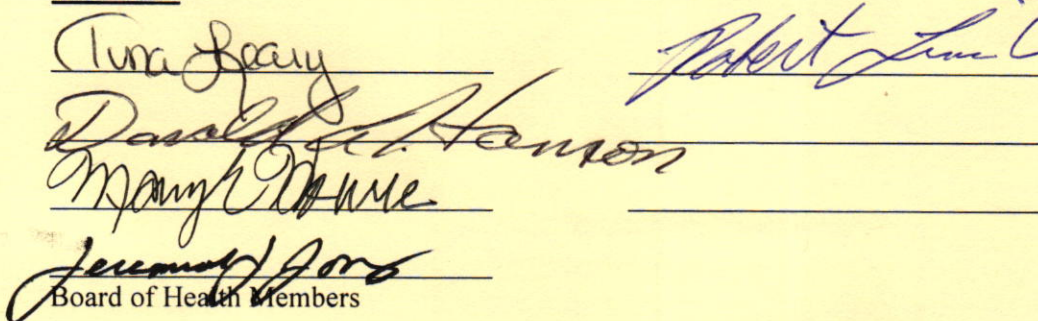 Tina Leary
Robert
Donald A. Hanson
Mary
Jeremiah J. Jones
Board of Health Members